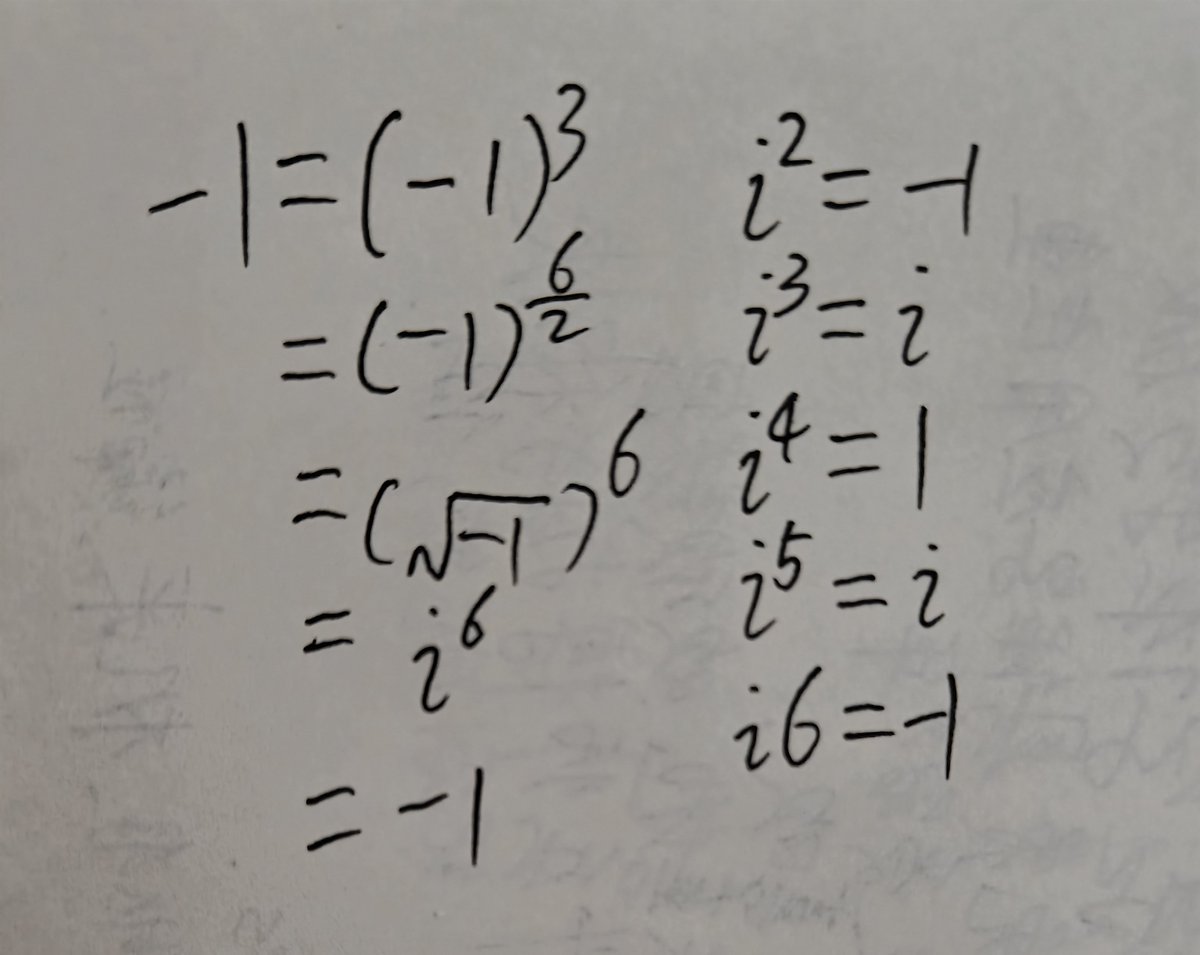 -1=(-1)^3
=(-1)^{\frac{6}{2}}
=(\sqrt{-1})^6
=i^6
=-1
i^2=-1
i^3=i
i^4=1
i^5=i
i6=-1